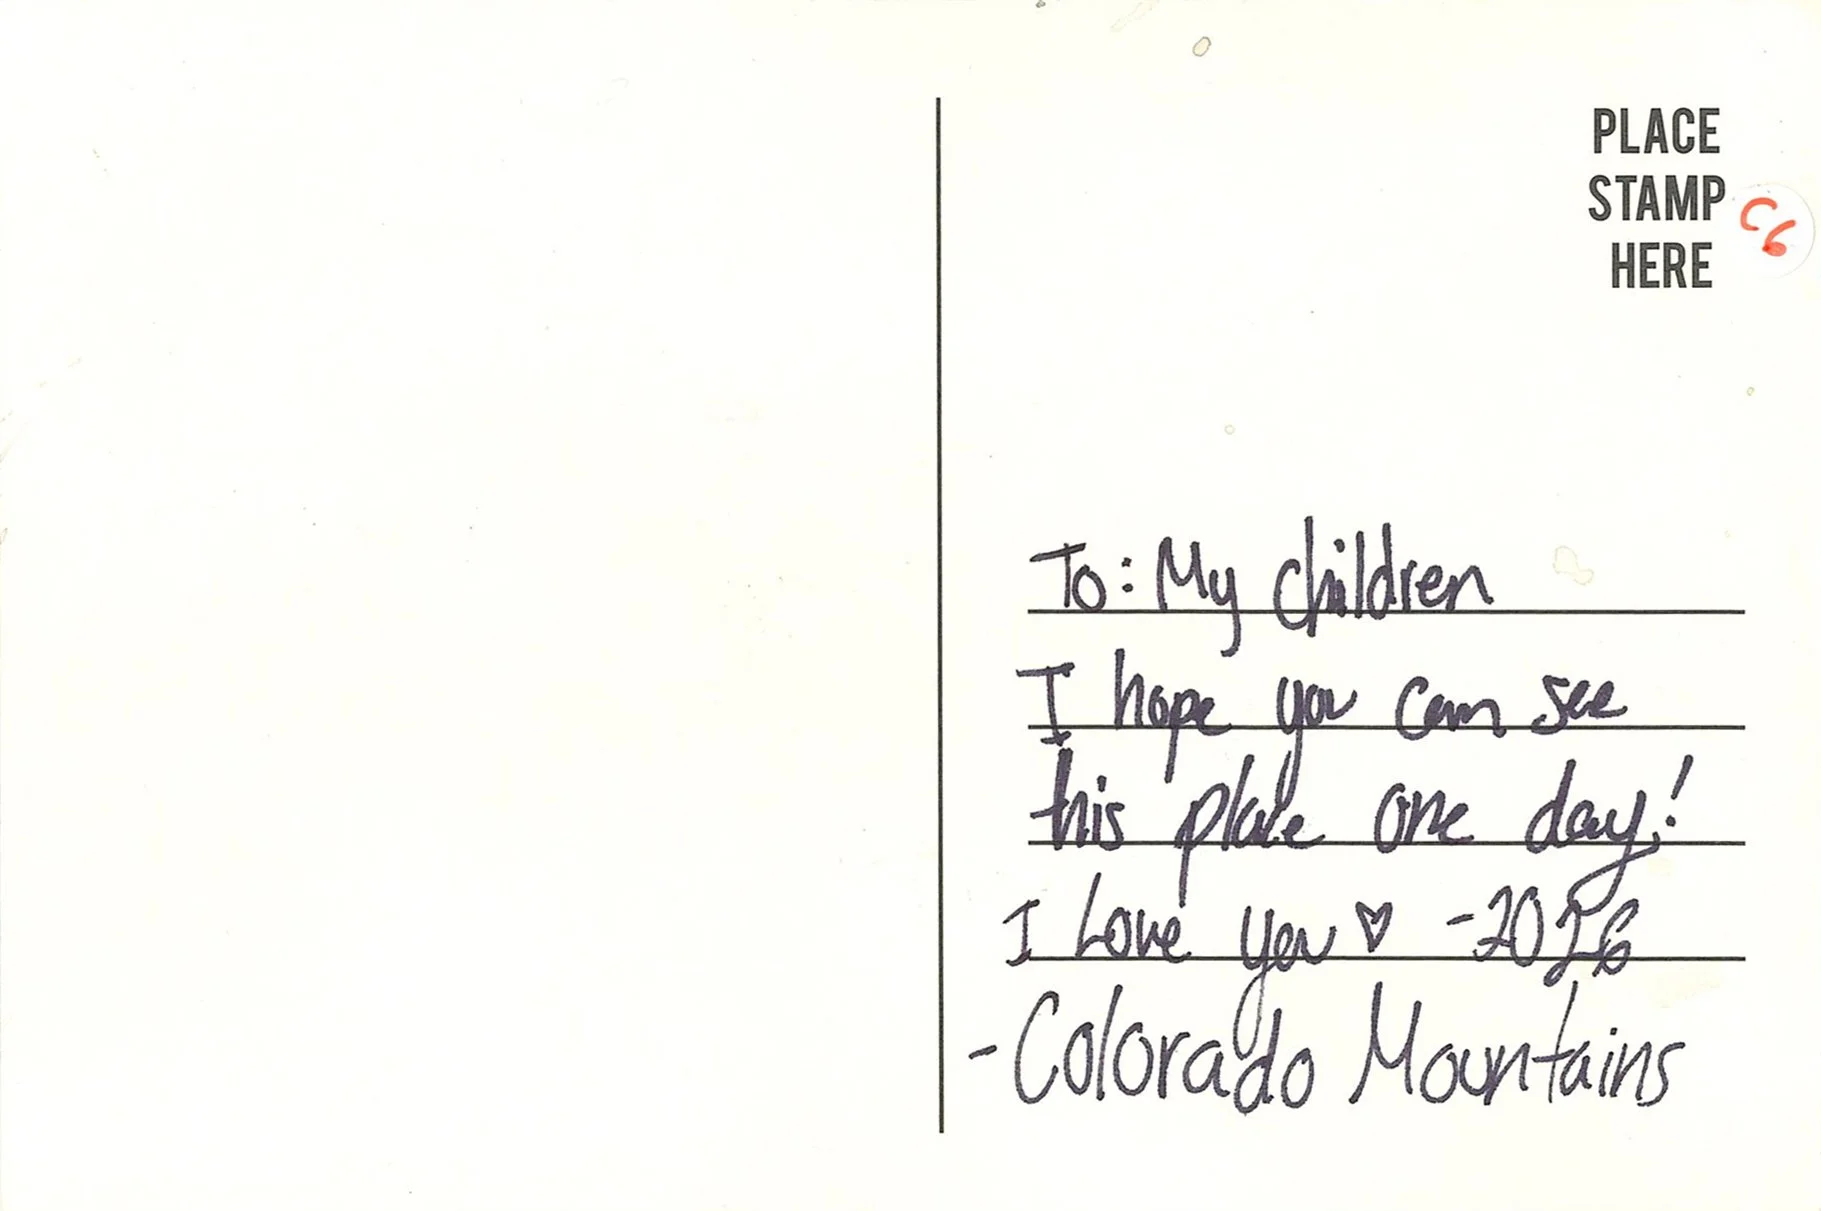 PLACE
STAMP
HERE
C6
To: My children
I hope you can see
this place one day!
I Love you ♡ -2026
-Colorado Mountains